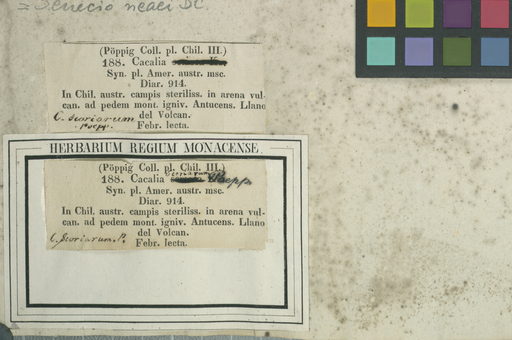 = Senecio neaei DC
(Pöppig Coll. pl. Chil. III.)
188. Cacalia
Syn. pl. Amer. austr. msc.
Diar. 914.
In Chil. austr. campis steriliss. in arena vul-
can. ad pedem mont. igniv. Antucens. Llano
del Volcan.
C. Scoriarum
Poepp.
Febr. lecta.
HERBARIUM REGIUM MONACENSE.
(Pöppig Coll. pl. Chil. III.)
188. Cacalia Poepp.
Syn. pl. Amer. austr. msc.
Diar. 914.
In Chil. austr. campis steriliss. in arena vul-
can. ad pedem mont. igniv. Antucens. Llano
del Volcan.
C. Scoriarum. P. Febr. lecta.